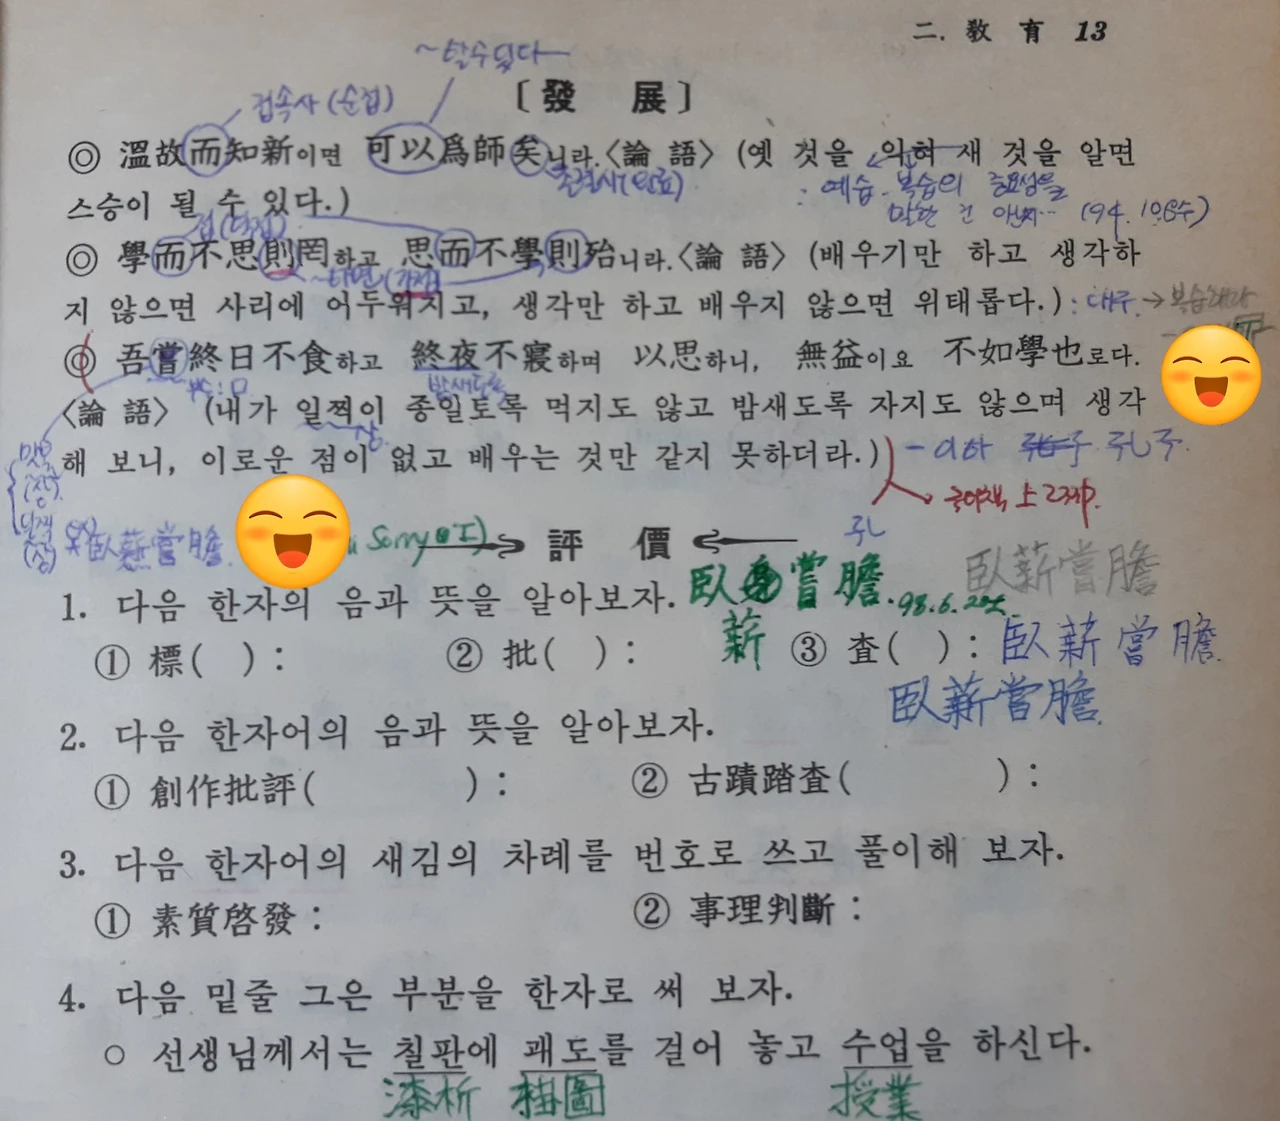 二. 敎 育 13
~할수있다
〔發 展〕
접속사 (순접)
◎ 溫故而知新이면 可以爲師矣니라.〈論 語〉 (옛 것을 익혀 새 것을 알면
: 예습 복습의 중요성을
스승이 될 수 있다.)
말한 건 아님 (94. 10
◎ 學而不思則罔하고 思而不學則殆니라.〈論 語〉 (배우기만 하고 생각하
~하면
지 않으면 사리에 어두워지고, 생각만 하고 배우지 않으면 위태롭다.) : 대구 →
◎ 吾嘗終日不食하고 終夜不寢하며 以思하니, 無益이요 不如學也로다.
부수: 口 밤새도록
〈論 語〉 (내가 일찍이 종일토록 먹지도 않고 밤새도록 자지도 않으며 생각
맛볼 상
(상)
해 보니, 이로운 점이 없고 배우는 것만 같지 못하더라.) - 이하 孔子
上 23
일찍
(상)
臥薪嘗膽 Sorry 評 價 孔
臥 嘗 膽. 98. 6. 臥薪嘗膽
1. 다음 한자의 음과 뜻을 알아보자.
薪
① 標( ) : ② 批( ) : ③ 査( ) : 臥薪嘗膽.
臥薪嘗膽.
2. 다음 한자어의 음과 뜻을 알아보자.
① 創作批評( ) : ② 古蹟踏査( ) :
3. 다음 한자어의 새김의 차례를 번호로 쓰고 풀이해 보자.
① 素質啓發 : ② 事理判斷 :
4. 다음 밑줄 그은 부분을 한자로 써 보자.
○ 선생님께서는 칠판에 괘도를 걸어 놓고 수업을 하신다.
漆析 掛圖 授業